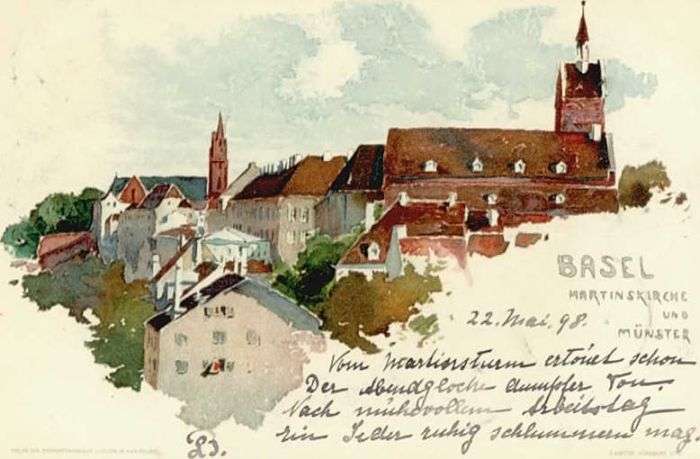 BASEL
MARTINSKIRCHE
UND
MÜNSTER
22. Mai, 98.
Vom Martinsturm ertönet schon
Der Abendglocke dumpfer Ton.
Nach mühevollem Arbeitstag
Ein Jeder ruhig schlummern mag.